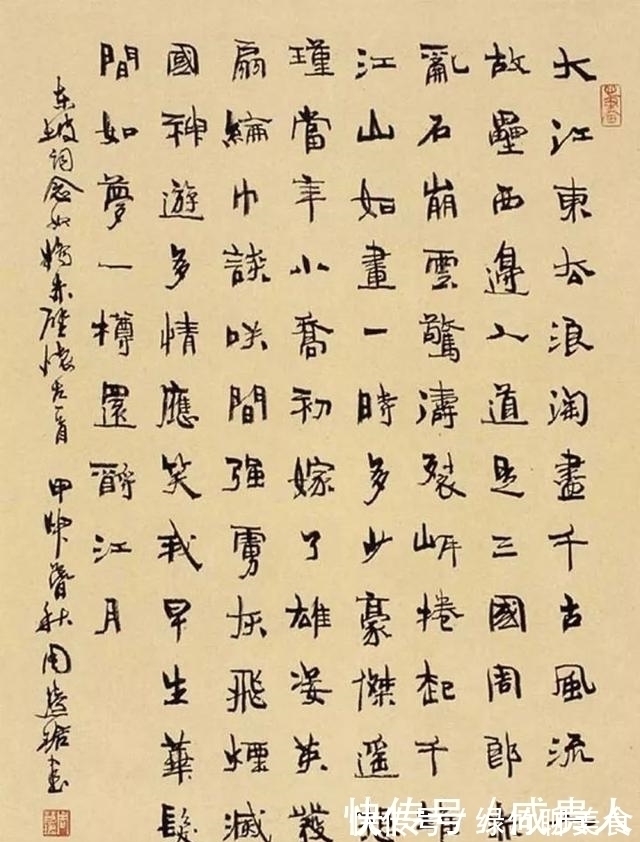 大江東去浪淘盡千古風流
故壘西邊人道是三國周郎
亂石崩雲驚濤裂岸捲起千
江山如畫一時多少豪傑遥
瑾當年小喬初嫁了雄姿英發
扇綸巾談咲間強虜灰飛煙滅
國神遊多情應笑我早生華髮
間如夢一樽還酹江月
东坡詞念奴嬌赤壁懷古一首 甲申暮秋周慧珺書
快传号/